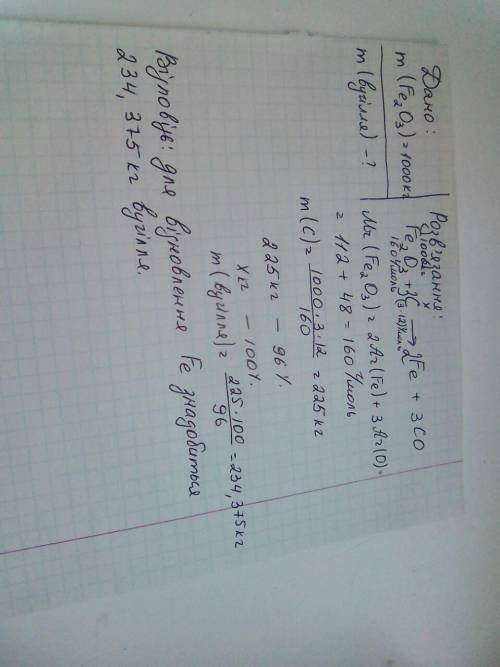 Дано:
m(Fe₂O₃) = 1000кг
m(вугілля) - ?
Розв'язання:
1000кг x
Fe₂O₃ + 3C → 2Fe + 3CO
160г/моль (3·12)г/моль
Mr(Fe₂O₃) = 2Ar(Fe) + 3Ar(O) =
= 112 + 48 = 160 г/моль
m(C) = 1000·3·12/160 = 225 кг
225кг – 96%
xкг – 100%
m(вугілля) = 225·100/96 = 234,375кг
Відповідь: для відновлення Fe знадобиться
234,375кг вугілля.